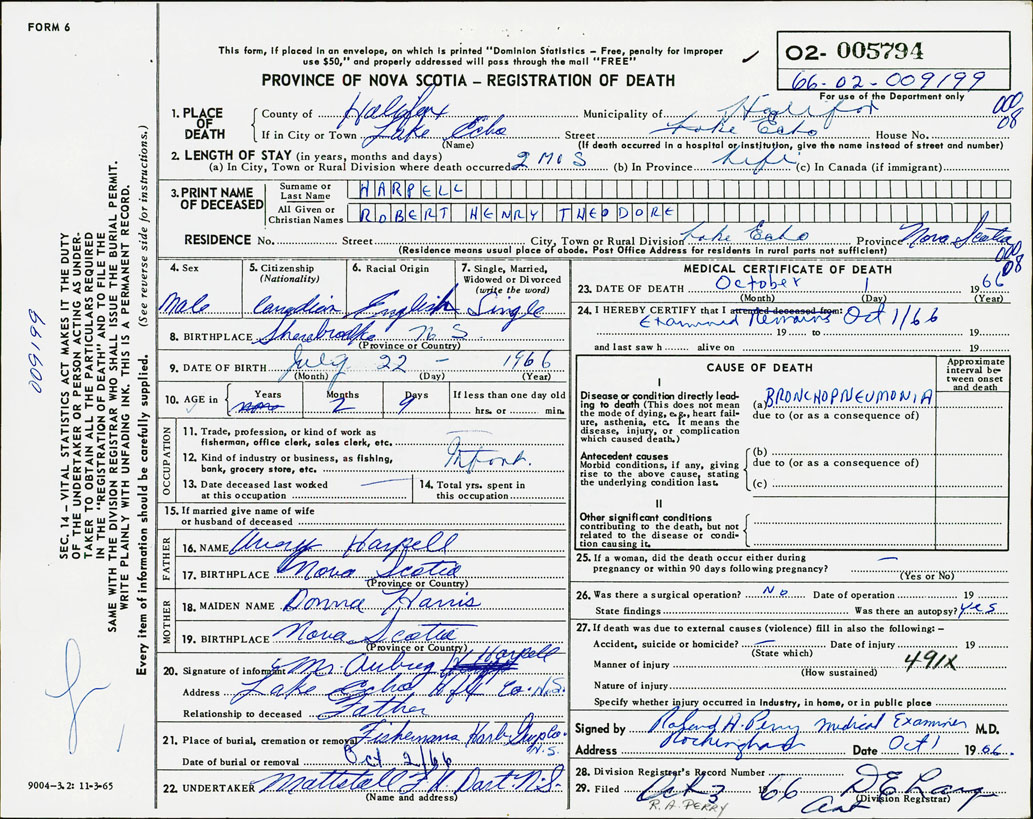 FORM 6
This form, if placed in an envelope, on which is printed "Dominion Statistics – Free, penalty for improper
use $50," and properly addressed will pass through the mail "FREE"
PROVINCE OF NOVA SCOTIA – REGISTRATION OF DEATH
02- 005794
66-02-009199
For use of the Department only
000
08
1. PLACE OF DEATH
County of Halifax Municipality of Halifax
If in City or Town Lake Echo Street Lake Echo House No.
(Name) (If death occurred in a hospital or institution, give the name instead of street and number)
2. LENGTH OF STAY (in years, months and days)
(a) In City, Town or Rural Division where death occurred 2 MOS (b) In Province life (c) In Canada (if immigrant)
3. PRINT NAME OF DECEASED
Surname or Last Name HARPELL
All Given or Christian Names ROBERT HENRY THEODORE
RESIDENCE No. Street City, Town or Rural Division Lake Echo Province Nova Scotia
(Residence means usual place of abode. Post Office Address for residents in rural parts not sufficient)
000
08
4. Sex
Male
5. Citizenship (Nationality)
Canadian
6. Racial Origin
English
7. Single, Married, Widowed or Divorced (write the word)
Single
8. BIRTHPLACE Sherbrooke N.S.
(Province or Country)
9. DATE OF BIRTH July 22 – 1966
(Month) (Day) (Year)
10. AGE in Years Months 2 Days 9 If less than one day old
hrs. or min.
OCCUPATION
11. Trade, profession, or kind of work as fisherman, office clerk, sales clerk, etc.
12. Kind of industry or business, as fishing, bank, grocery store, etc. Infant.
13. Date deceased last worked at this occupation
14. Total yrs. spent in this occupation
15. If married give name of wife or husband of deceased
FATHER
16. NAME Harpell
17. BIRTHPLACE Nova Scotia
(Province or Country)
MOTHER
18. MAIDEN NAME Donna Harris
19. BIRTHPLACE Nova Scotia
(Province or Country)
20. Signature of informant Mr. Aubrey Harpell
Address Lake Echo Hfx Co. N.S.
Relationship to deceased Father
21. Place of burial, cremation or removal Fishermans Harb. Guy Co. N.S.
Date of burial or removal Oct 2/66
22. UNDERTAKER Mattatall F H Dart. N.S.
(Name and address)
MEDICAL CERTIFICATE OF DEATH
23. DATE OF DEATH October 1 1966
(Month) (Day) (Year)
24. I HEREBY CERTIFY that I attended deceased from:
Examined Remains Oct 1/66
19 to 19
and last saw h alive on 19
CAUSE OF DEATH
Approximate interval between onset and death
I
Disease or condition directly leading to death (This does not mean the mode of dying, e.g., heart failure, asthenia, etc. It means the disease, injury, or complication which caused death.)
(a) BRONCHOPNEUMONIA
due to (or as a consequence of)
Antecedent causes
Morbid conditions, if any, giving rise to the above cause, stating the underlying condition last.
(b)
due to (or as a consequence of)
(c)
II
Other significant conditions
contributing to the death, but not related to the disease or condition causing it.
25. If a woman, did the death occur either during pregnancy or within 90 days following pregnancy? –
(Yes or No)
26. Was there a surgical operation? No Date of operation 19
State findings Was there an autopsy? Yes
27. If death was due to external causes (violence) fill in also the following: –
Accident, suicide or homicide? – Date of injury 19
(State which)
Manner of injury 491X
(How sustained)
Nature of injury
Specify whether injury occurred in Industry, in home, or in public place
Signed by Roland A. Perry Medical Examiner M.D.
Address Rockingham Date Oct 1 1966.
28. Division Registrar's Record Number
29. Filed Oct 3 1966 D E Lang
(Division Registrar)
R.A. PERRY
SEC. 14 – VITAL STATISTICS ACT MAKES IT THE DUTY
OF THE UNDERTAKER OR PERSON ACTING AS UNDER-
TAKER TO OBTAIN ALL THE PARTICULARS REQUIRED
IN THE "REGISTRATION OF DEATH" AND TO FILE THE
SAME WITH THE DIVISION REGISTRAR WHO SHALL ISSUE THE BURIAL PERMIT.
WRITE PLAINLY WITH UNFADING INK. THIS IS A PERMANENT RECORD.
Every item of information should be carefully supplied. (See reverse side for instructions.)
009199
9004-3.2: 11-3-65